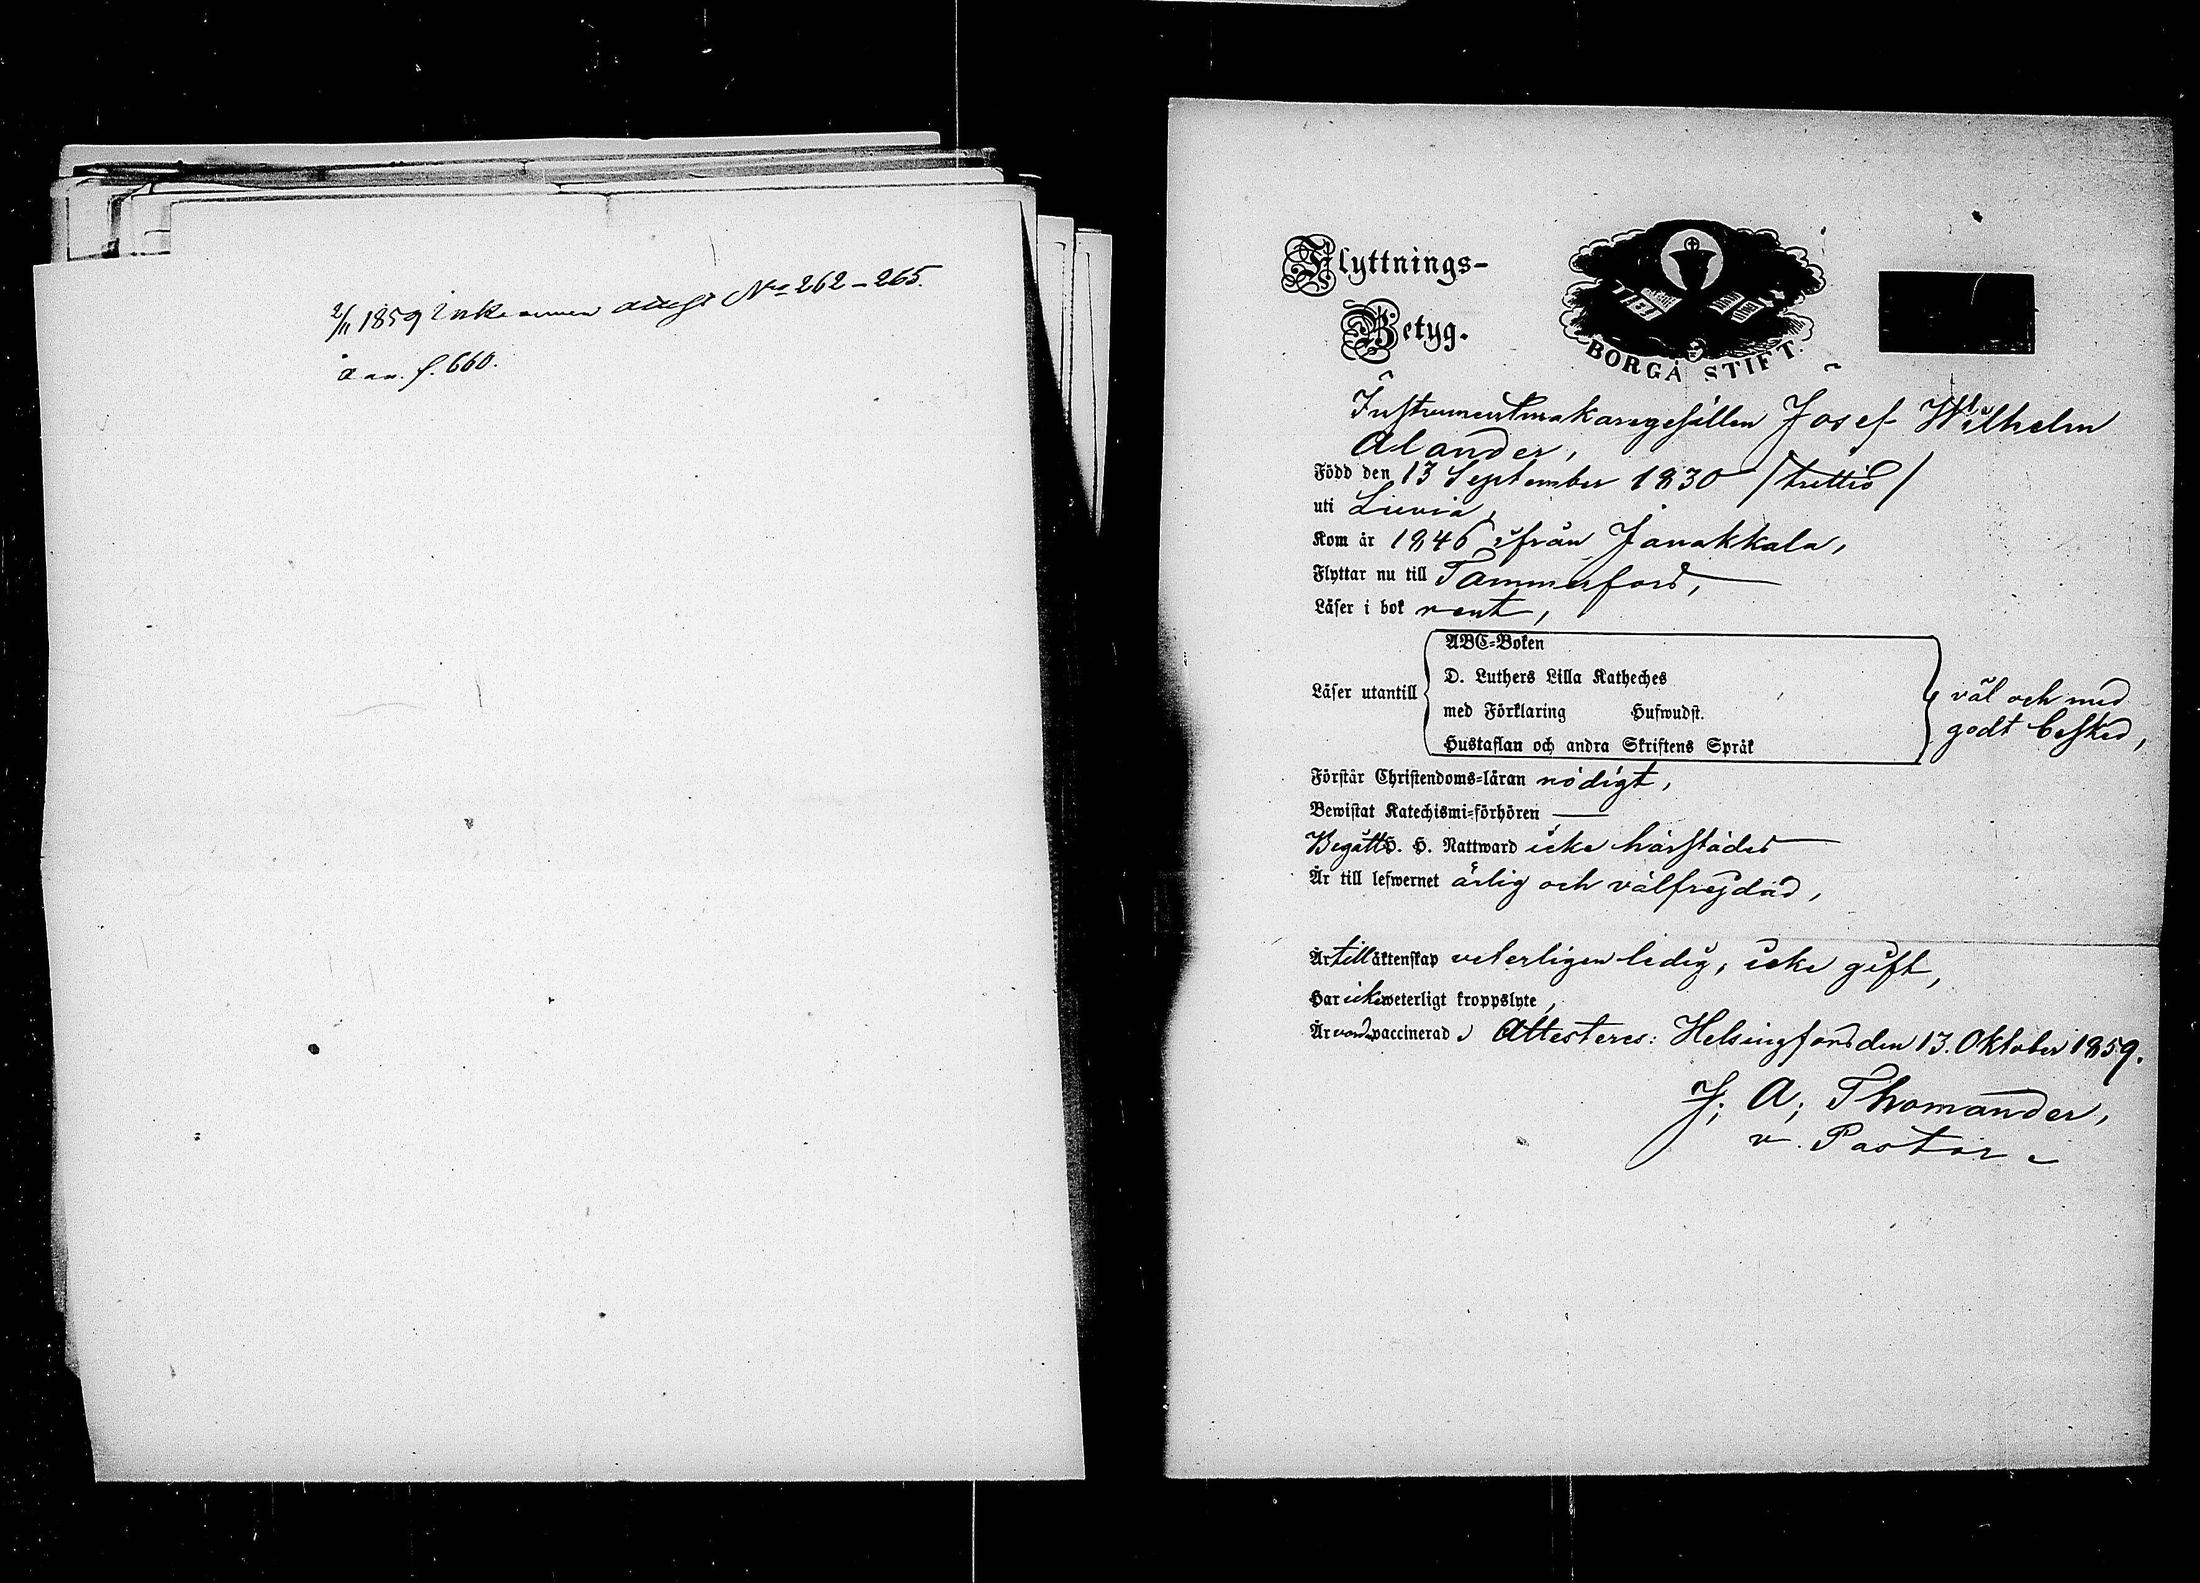 2/11 1859 Inkommen attest No 262–265.
Flyttnings-
Betyg.
BORGÅ STIFT.
Instrumentmakaregesällen Josef Wilhelm
Alander,
Född den 13 September 1830 /trettio/
uti Luvia,
Kom år 1846 ifrån Janakkala,
Flyttar nu till Tammerfors,
Läser i bok rent,
ABC-Boken
D. Luthers Lilla Katheches
Läser utantill
med Förklaring Hufwudst.
Hustaflan och andra Skriftens Språk
väl och med
godt besked,
Förstår Christendoms-läran nödigt,
Bewistat Katechismi-förhören —
Begått H. H. Nattward icke härstädes
Är till lefwernet ärlig och välfrejdad,
Är till äktenskap veterligen ledig, icke gift,
Har icke weterligt kroppslyte,
Är vaccinerad, Attesteres: Helsingfors den 13. Oktober 1859.
J; A; Thomander,
v. Pastor